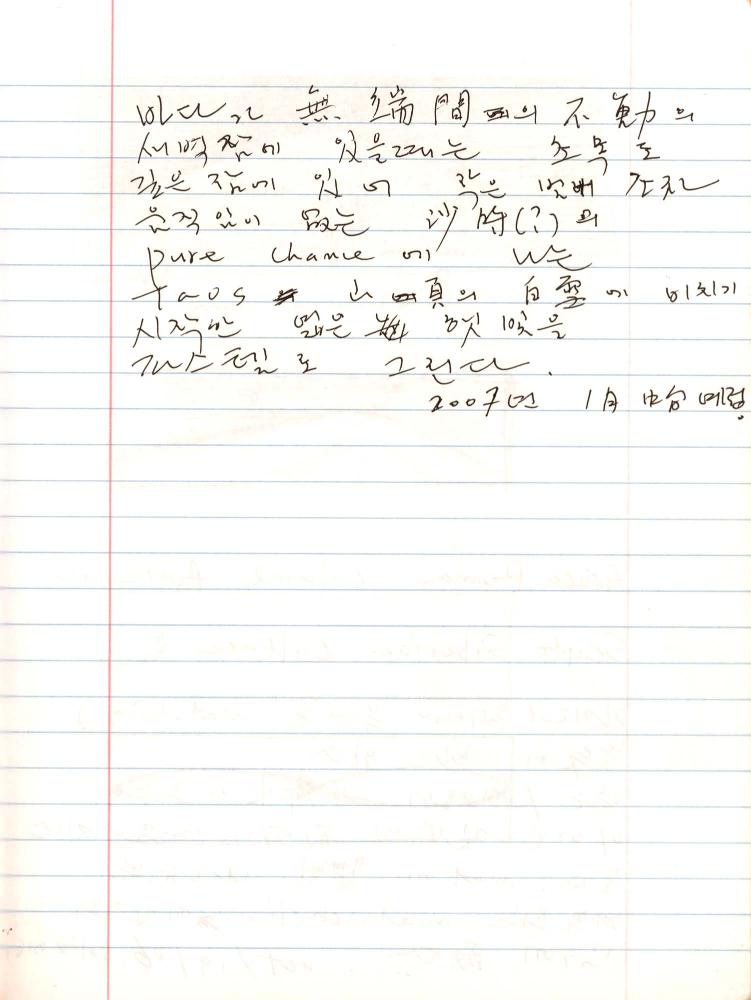 바다가 無端間의 不動의
새벽잠에 있을때는 초목도
깊은 잠에 있어 작은 벌레 조차
움직임이 없는 (?)의
pure chance에 나는
taos 山頂의 白雪에 비치기
시작한 엷은 햇빛을
파스텔로 그린다.
2007년 1月